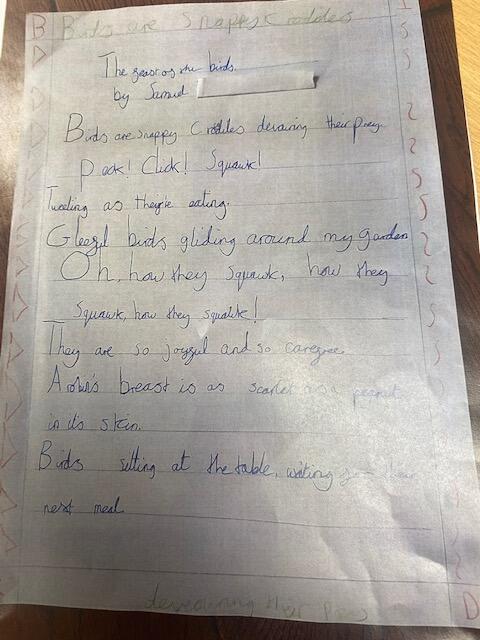 Birds are Snappy Crocodiles
The geast og the birds.
by Samuel
Birds are snappy Crodiles devouring their prey.
Peck! Cluck! Squawk!
Tweeting as they're eating.
Gleegul birds gliding around my garden
Oh, how they squawk, how they
squawk, how they squawk!
They are so joygul and so caregree.
A robin's breast is as scarlet as a peanut
in it's skin.
Birds sitting at the table, waiting gor their
next meal
devouring their prey
B
D